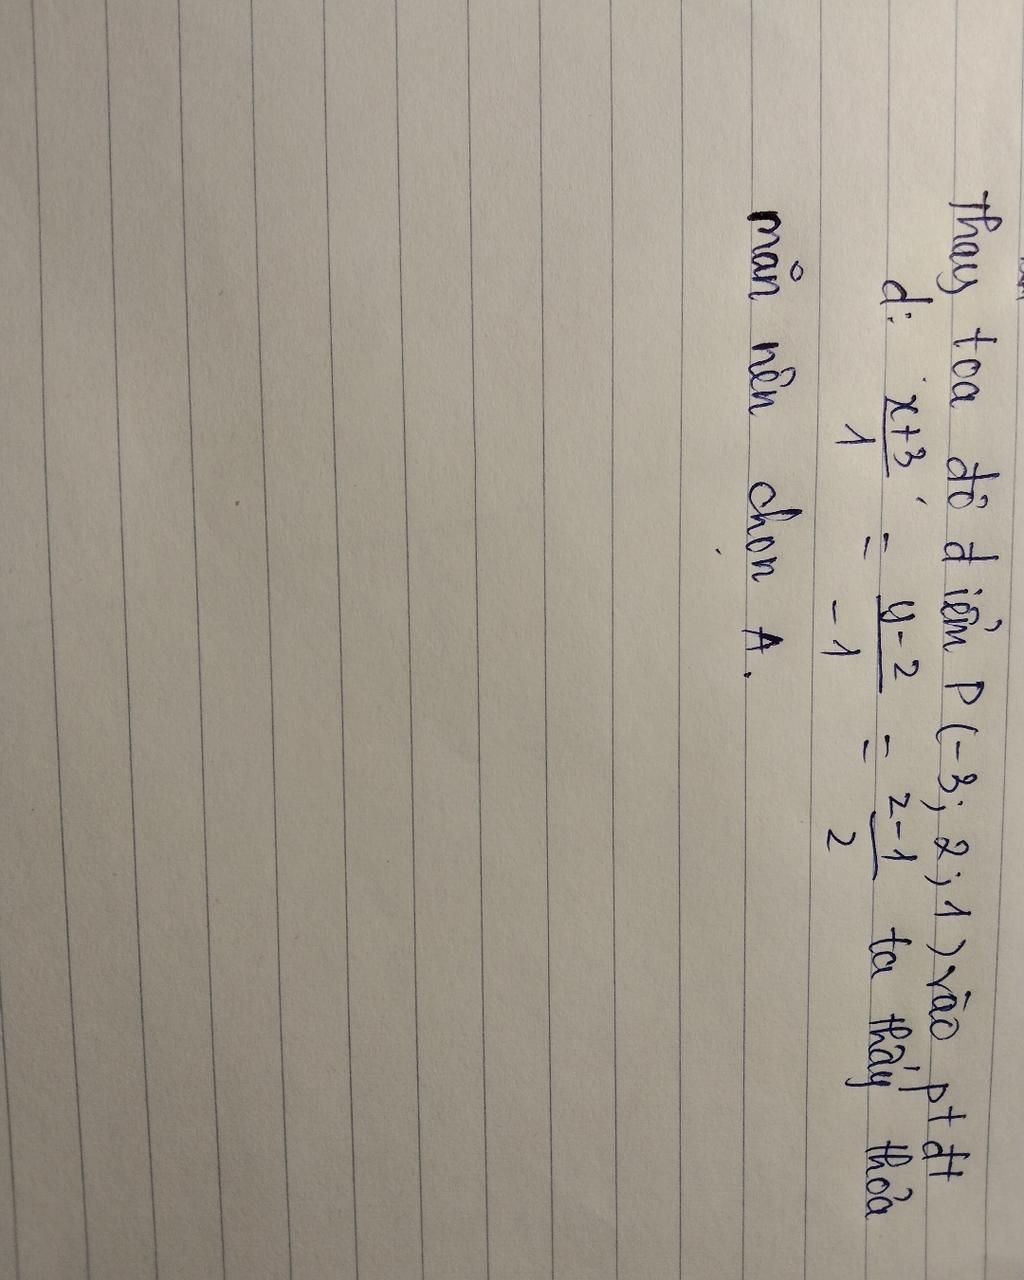 Thay toa độ điểm P (-3; 2; 1) vào pt đt
d: x+3/1 = y-2/-1 = z-1/2 ta thấy thỏa
mãn nên chọn A.